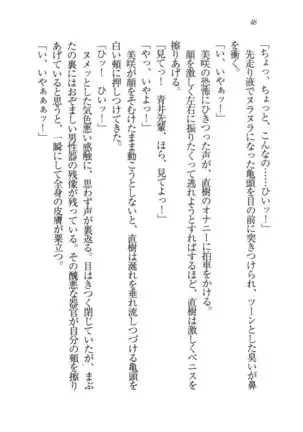 48
「ちょっ、ちょっと、こんなの……ひぃッ！」
先走り液でヌラヌラになった亀頭を目の前に突きつけられ、ツーンとした臭いが鼻
を衝く。
美咲の恐怖にひきつった声が、直樹のオナニーに拍車をかける。
顔を激しく左右に振りたくって逃れようとすればするほど、直樹は激しくペニスを
擦りあげる。
「見てっ！　青井先輩、ほら、見てよっ！」
「やっ、いやよっ！」
美咲が顔をそむけたまま動こうとしないと、直樹は涎れを垂れ流しつづける亀頭を
白い頬に押しつけてきた。
「ひッ！　ひいッ！」
ヌメッとした気色悪い感触に、思わず声が裏返る。目はきつく閉じていたが、まぶ
たの裏にはおぞましい男性器の残像が残っている。その醜悪な器官が自分の頬を擦り
あげていると思うと、一瞬にして全身の皮膚が粟立つ。
「い、いやぁぁぁッ！」